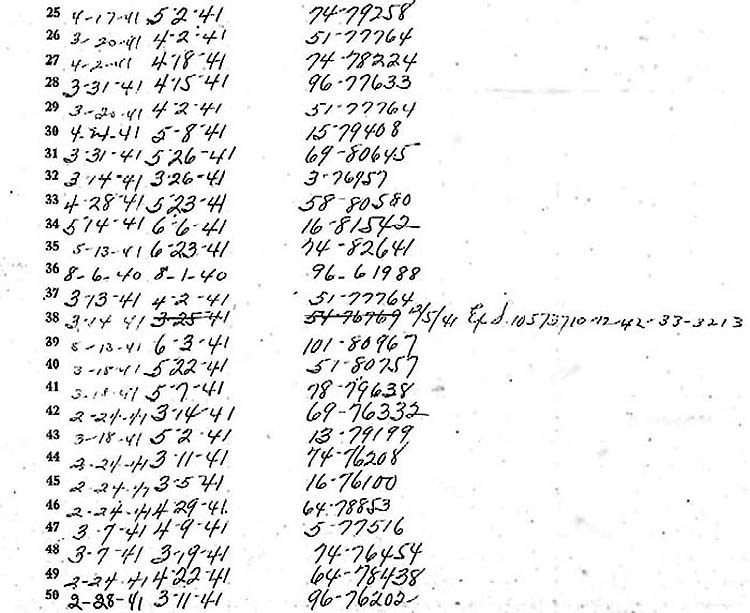 25 4-17-41 5-2-41 74-79258
26 3-20-41 4-2-41 51-77764
27 4-2-41 4-18-41 74-78224
28 3-31-41 4-15-41 96-77633
29 3-20-41 4-2-41 51-77764
30 4-21-41 5-8-41 15-79408
31 3-31-41 5-26-41 69-80645
32 3-14-41 3-26-41 3-76957
33 4-28-41 5-23-41 58-80580
34 5-14-41 6-6-41 16-81542
35 5-13-41 6-23-41 74-82641
36 8-6-40 8-1-40 96-61988
37 3-13-41 4-2-41 51-77764
38 3-14-41 3-25-41 54-76769 12/5/41 10573710-12-42-33-3213
39 5-13-41 6-3-41 101-80967
40 3-18-41 5-22-41 51-80757
41 3-18-41 5-7-41 78-79638
42 2-24-41 3-14-41 69-76332
43 3-18-41 5-2-41 13-79199
44 2-24-41 3-11-41 74-76208
45 2-24-41 3-5-41 16-76100
46 2-24-41 4-29-41 64-78853
47 3-7-41 4-9-41 5-77516
48 3-7-41 3-19-41 74-76454
49 2-24-41 4-22-41 64-78438
50 2-28-41 3-11-41 96-76202